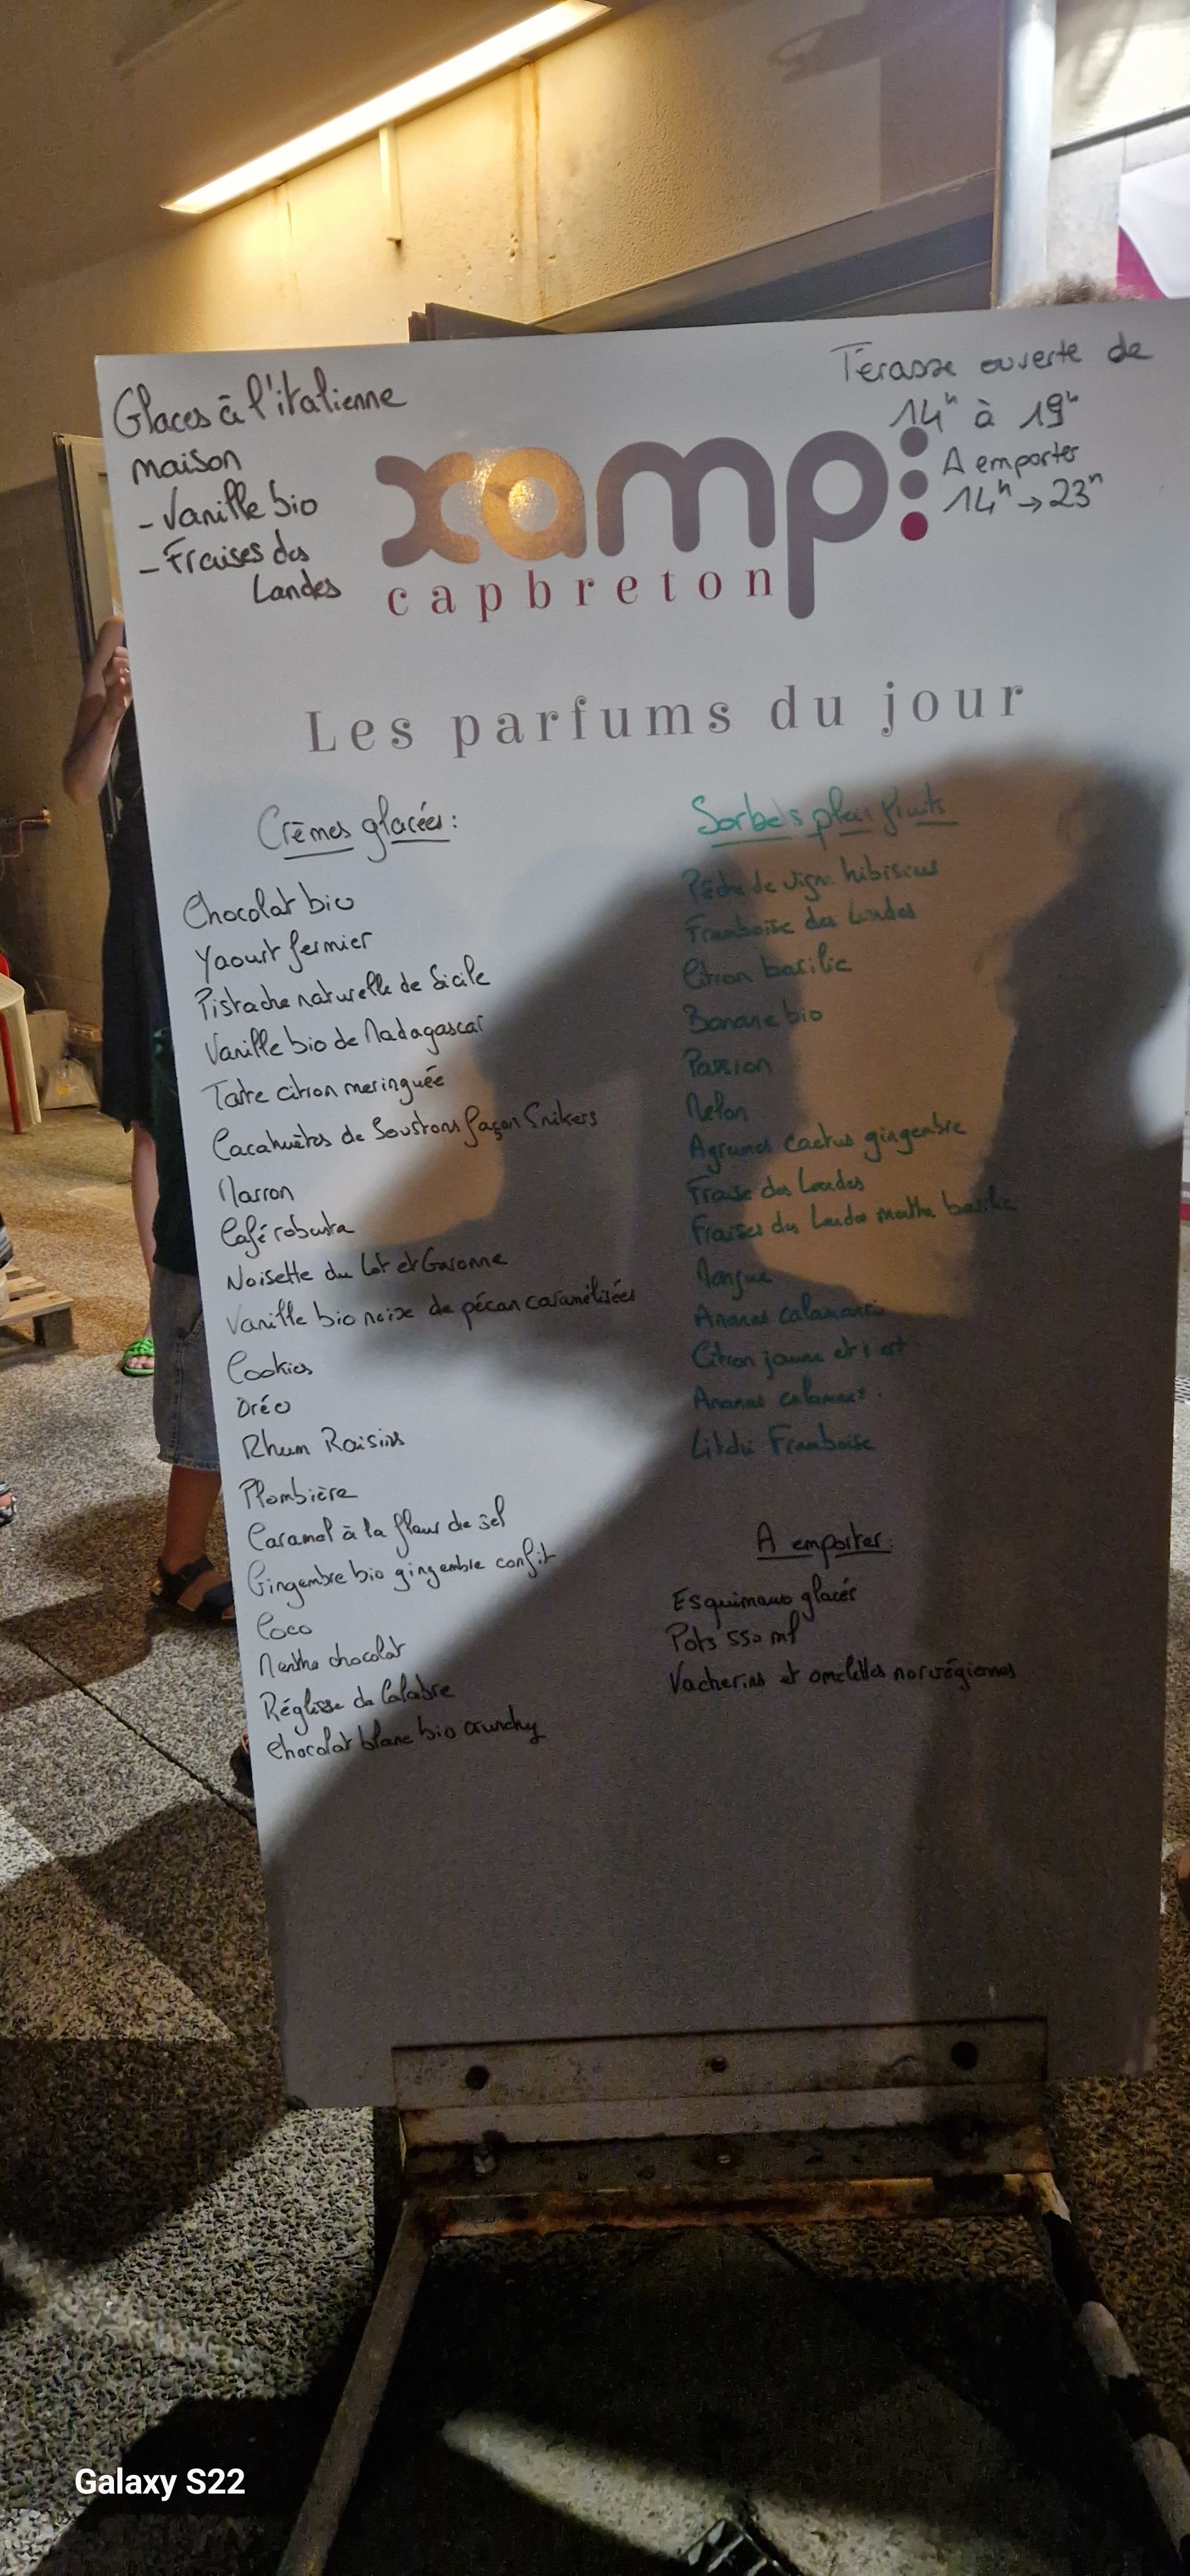 Glaces à l'italienne
maison
- Vanille bio
- Fraises des
Landes
Térasse ouverte de
14h à 19h
A emporter
14h → 23h
xamp
capbreton
Les parfums du jour
Crèmes glacées:
Chocolat bio
Yaourt fermier
Pistache naturelle de Sicile
Vanille bio de Madagascar
Tarte citron meringuée
Cacahuètes de Soustons façon Snikers
Marron
Café robusta
Noisette du Lot et Garonne
Vanille bio noix de pécan caramélisées
Cookies
Oréo
Rhum Raisins
Plombière
Caramel à la fleur de sel
Gingembre bio gingembre confit
Coco
Menthe chocolat
Réglisse de Calabre
Chocolat blanc bio crunchy
Sorbets plein fruits
Pêche de vigne hibiscus
Framboise des Landes
Citron basilic
Banane bio
Passion
Melon
Agrumes cactus gingembre
Fraise des Landes
Fraises des Landes menthe basilic
Mangue
Ananas calamansi
Citron jaune et
Ananas
Litchi Framboise
A emporter:
Esquimaux glacés
Pots 550 ml
Vacherins et omelettes norvégiennes
Galaxy S22